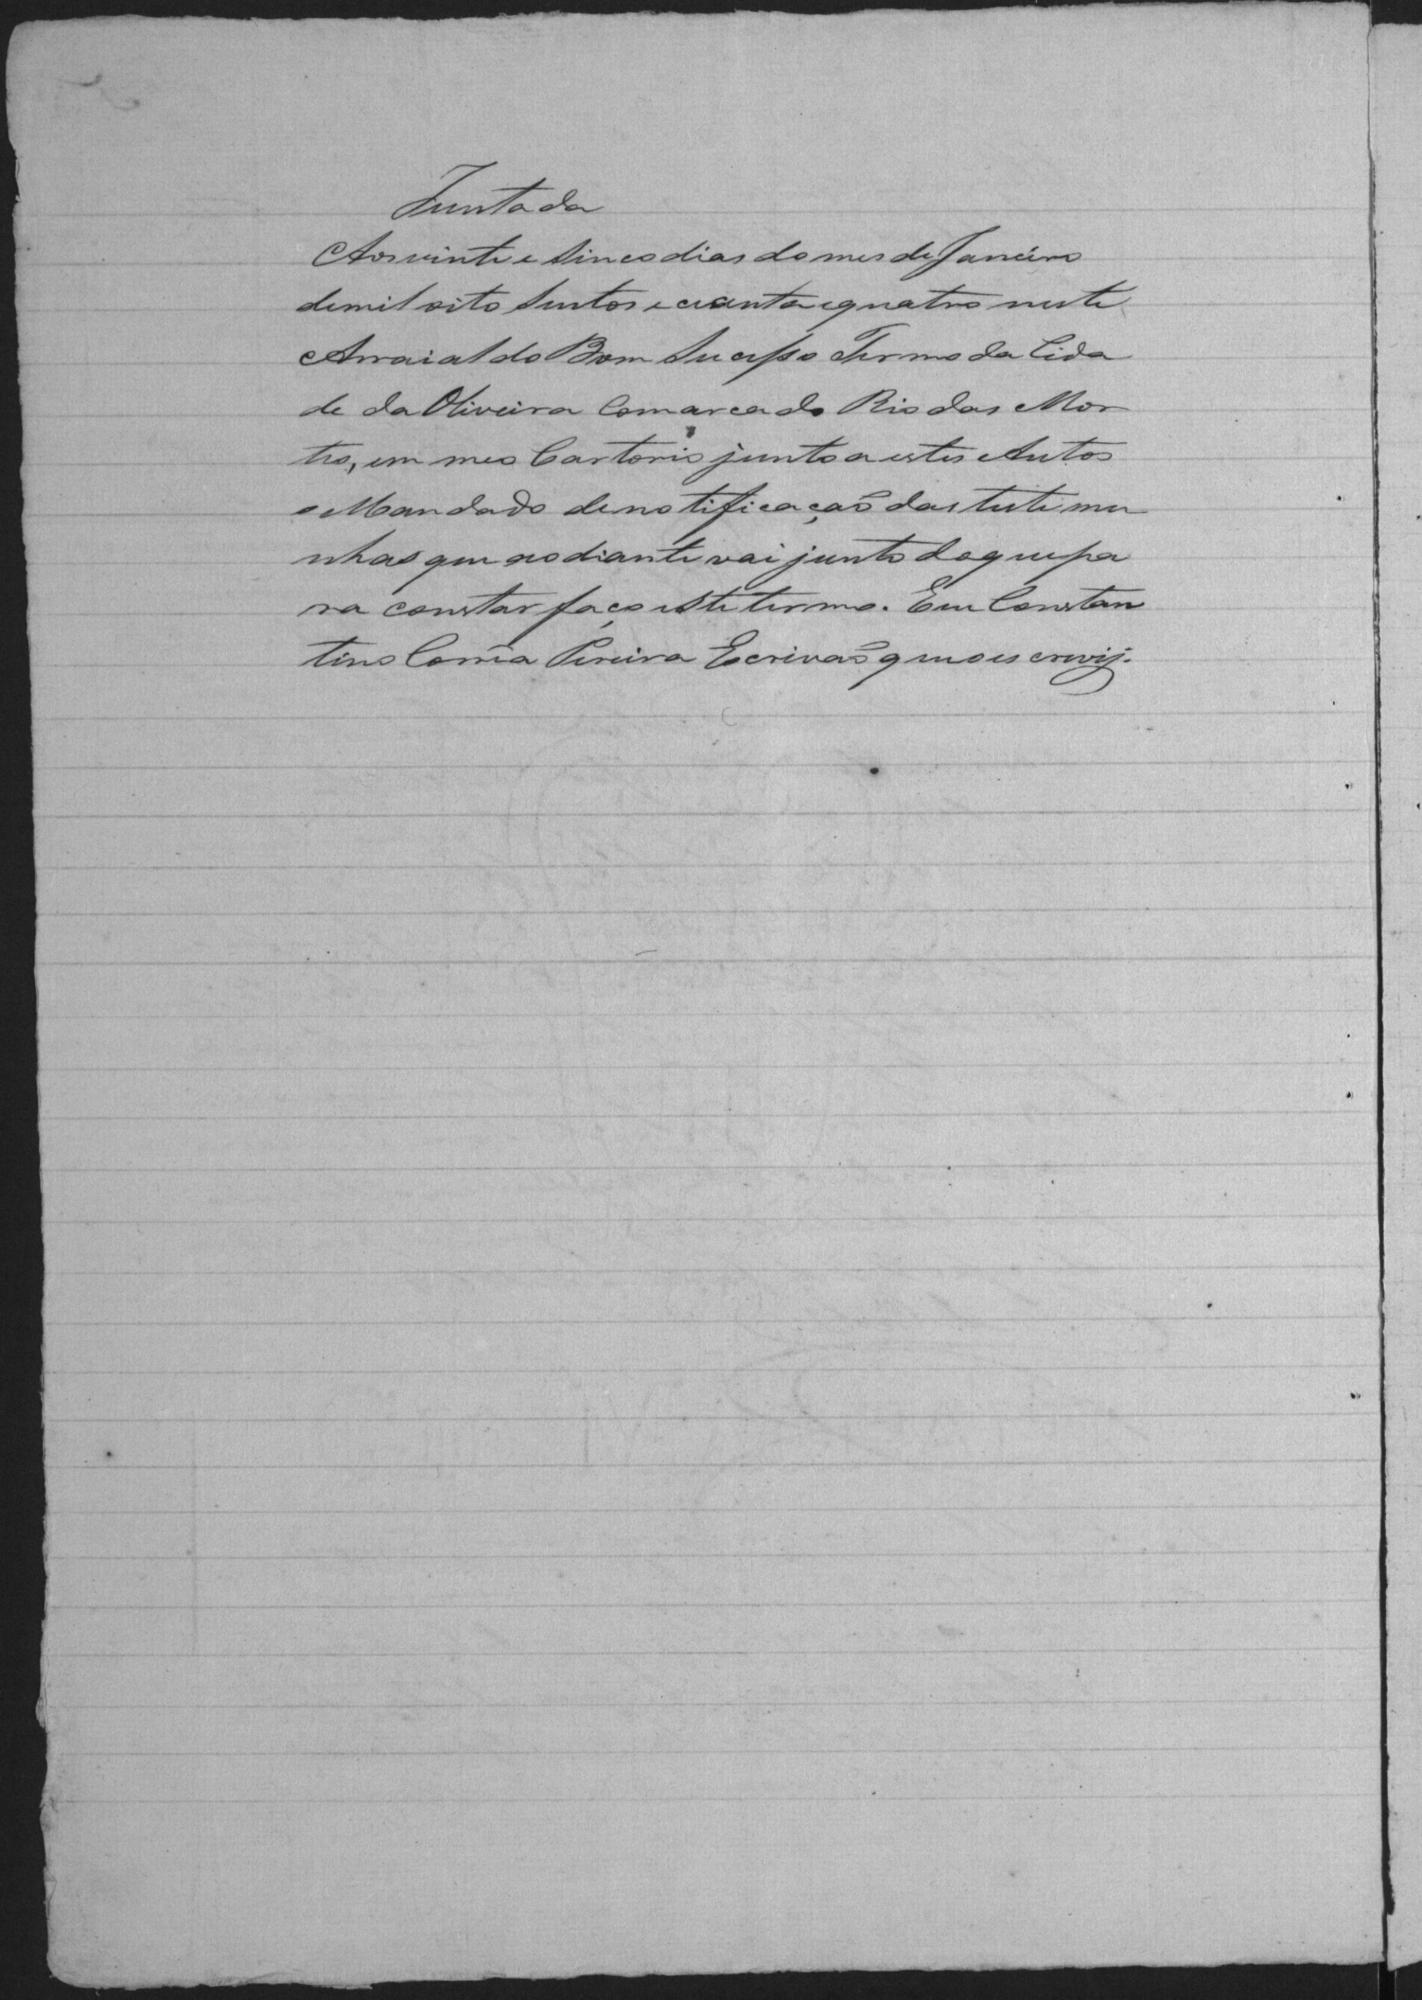 Juntada
Aos vinte e sinco dias do mes de Janeiro
de mil oito sentos e coanta e quatro neste
Arraial do Bom Sucesso Termo da Cida
de da Oliveira Comarca do Rio das Mor
tes, em meo Cartorio junto a estes Autos
o Mandado de notificação das testemu
nhas que ao diante vai junto do que pa
ra constar faço este termo. Eu Constan
tino Corrêa Pereira Escrivaõ que o escrevij.